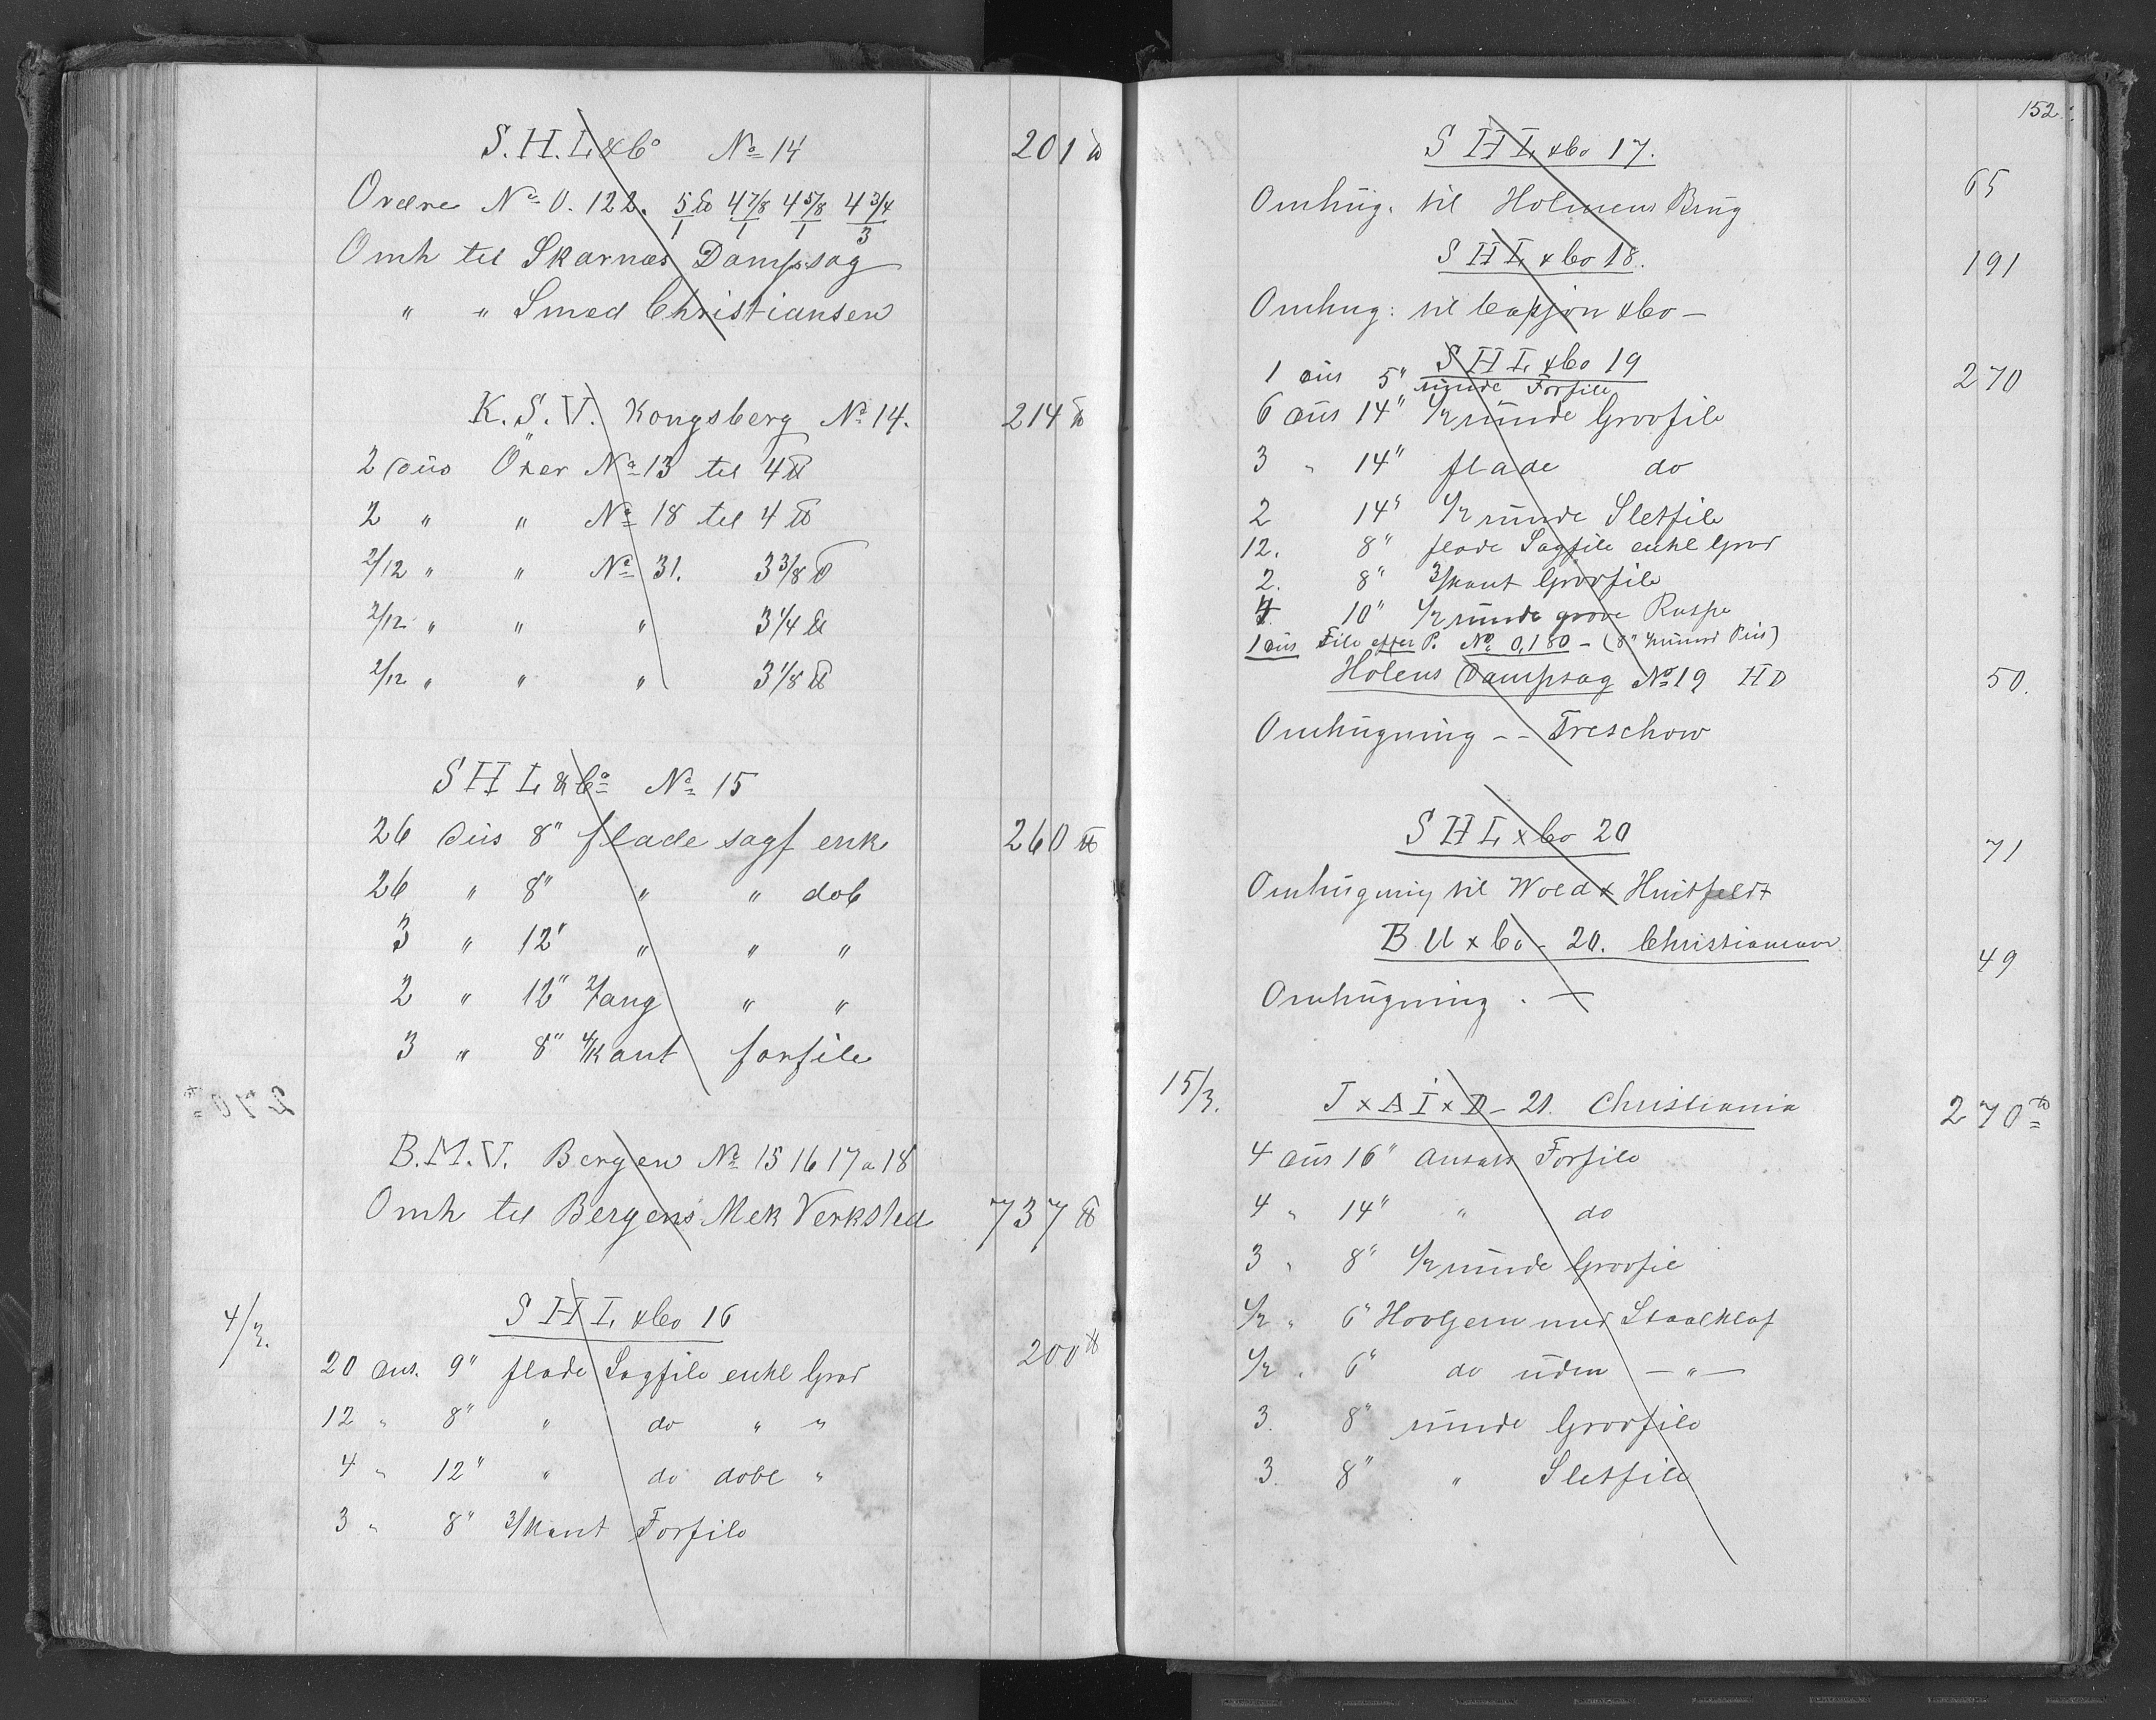 S. H. L. & Co No 14 201 ℔
Ordre No 0. 122. 5 ℔/1 4 7/8/1 4 5/8/1 4 3/4/3
Omh til Skarnæs Dampsag
" " Smed Christiansen
K. S. V. Kongsberg No 14. 214 ℔
2 dus Öxer No 13 til 4 ℔
2 " " No 18 til 4 ℔
2/12 " " No 31. 3 3/8 ℔
2/12 " " " 3 1/4 ℔
2/12 " " " 3 1/8 ℔
S H L & Co No 15
26 dus 8" flade sagf enk 260 ℔
26 " 8" " " dob
3 " 12" " " "
2 " 12" 2/ang " "
3 " 8" 4/kant forfile
B. M. V. Bergen No 15 16 17 a 18
Omh til Bergens Mek Verksted 737 ℔
4/3. S H L & Co 16
20 dus. 9" flade Sagfile enkl Grad 200 ℔
12 " 8" " do " "
4 " 12" " do dobl "
3 " 8" 3/kant Forfile
152.
S H L & Co 17.
Omhug. til Holmens Brug 65
S H L & Co 18. 191
Omhug: til & Co –
S H L & Co 19 270
1 dus 5" runde Forfile
6 dus 14" 1/2 runde Grovfile
3 " 14" flade do
2 14" 1/2 runde Sletfile
12. 8" flade Sagfile enkl Grad
2. 8" 3/kant Grovfile
4 10" 1/2 runde grove Raspe
1 dus File efter P. No 0,180 – (8"
Holens Dampsag No 19 H D 50.
Omhugning – – Treschow
S H L & Co 20 71
Omhugning til Wold & Huitfeldt
B U & Co – 20. Christiania 49
Omhugning . –
15/3. J & A I & D – 21. Christiania 270 ℔
4 dus 16" Ansats Forfile
4 " 14" " do
3 " 8" 1/2 runde Grovfil
1/2 " 6" Hovljern med Staalklaf
1/2 " 6" do uden – " –
3. 8" runde Grovfile
3. 8" " Sletfile